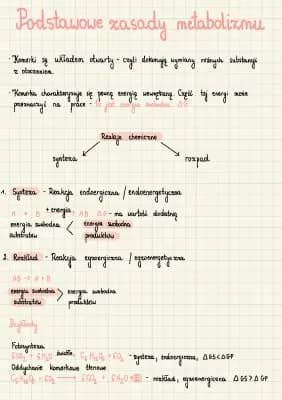 Podstawowe zasady metabolizmu
• Komórki są układem otwarty - czyli dokonują wymiany różnych substancji
z otoczeniem.
• Komórka charakteryzuje się pewną energią wewnętrzną. Część tej energii może
przeznaczyć na pracę - to jest energia swobodna ΔG
Reakcje chemiczne
synteza rozpad
1. Synteza - Reakcja endoergiczna / endoenergetyczna
A + B + energia → AB ΔG - ma wartość dodatnią
energia swobodna < energia swobodna
substratów produktów
2. Rozkład - Reakcja egzoergiczna / egzoenergetyczna
AB → A + B
energia swobodna > energia swobodna
substratów produktów
Przykłady
Fotosynteza
6CO₂ + 6H₂O światło C₆H₁₂O₆ + 6O₂ - synteza, endoergiczna, ΔGS<ΔGP
Oddychanie komórkowe tlenowe
C₆H₁₂O₆ + 6O₂ → 6CO₂ + 6H₂O + E - rozkład, egzoergiczna ΔGS>ΔGP